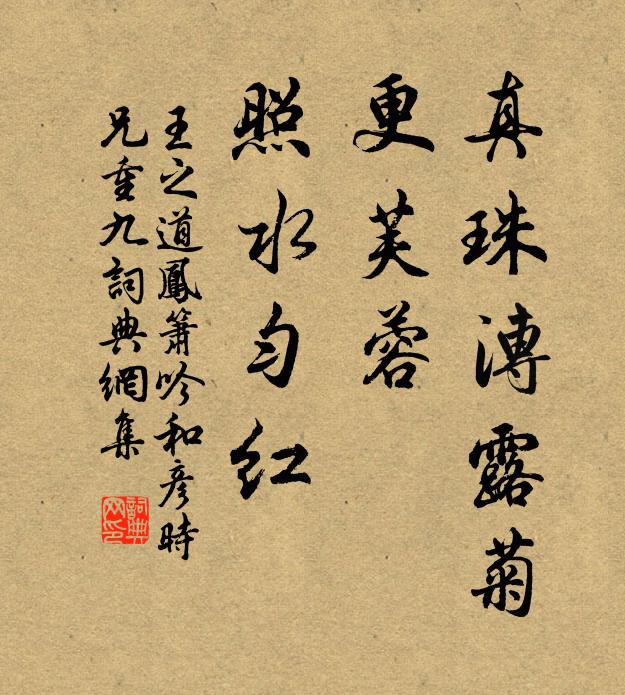 真珠漙露菊
更芙蓉
照水勻紅
王之道鳳簫吟和彦時
兄重九詞典網集
詞典
网印